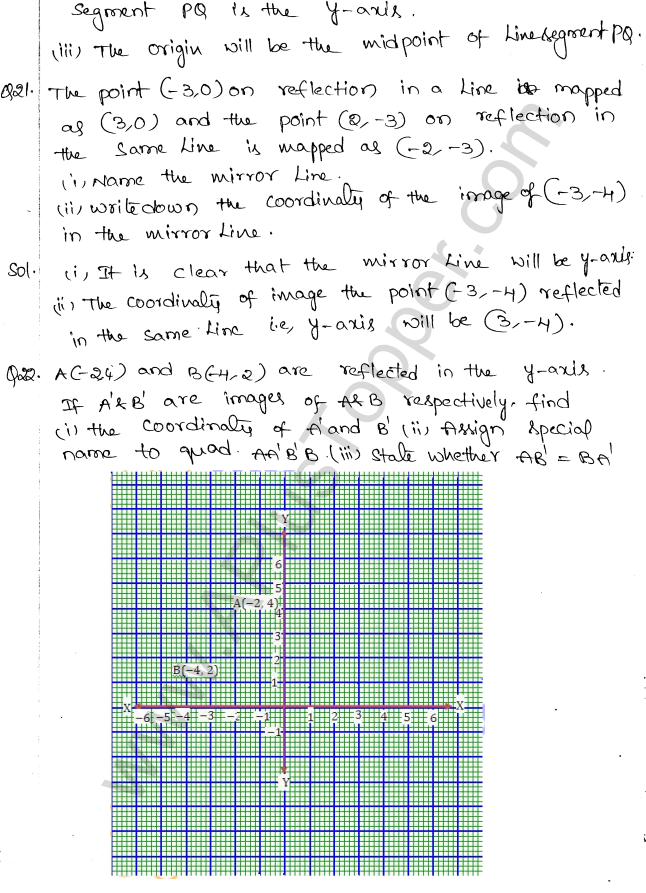 segment PQ is the y-axis.
(iii) The origin will be the midpoint of Linesegment PQ.
Q.21. The point (-3,0) on reflection in a Line is mapped
as (3,0) and the point (2,-3) on reflection in
the same Line is mapped as (-2,-3).
(i) Name the mirror Line.
(ii) write down the coordinates of the image of (-3,-4)
in the mirror Line.
Sol. (i) It is clear that the mirror Line will be y-axis.
(ii) The coordinates of image the point (-3,-4) reflected
in the same Line i.e, y-axis will be (3,-4).
Q.22. A(-2,4) and B(-4,2) are reflected in the y-axis.
If A'& B' are images of A&B respectively, find
(i) the coordinates of A' and B' (ii) Assign special
name to quad. AA'B'B (iii) State whether AB' = BA'
Y
6
5
A(-2, 4)
4
3
2
B(-4, 2)
1
X -6 -5 -4 -3 -2 -1 1 2 3 4 5 6 X
-1
Y
www.APlusTopper.com